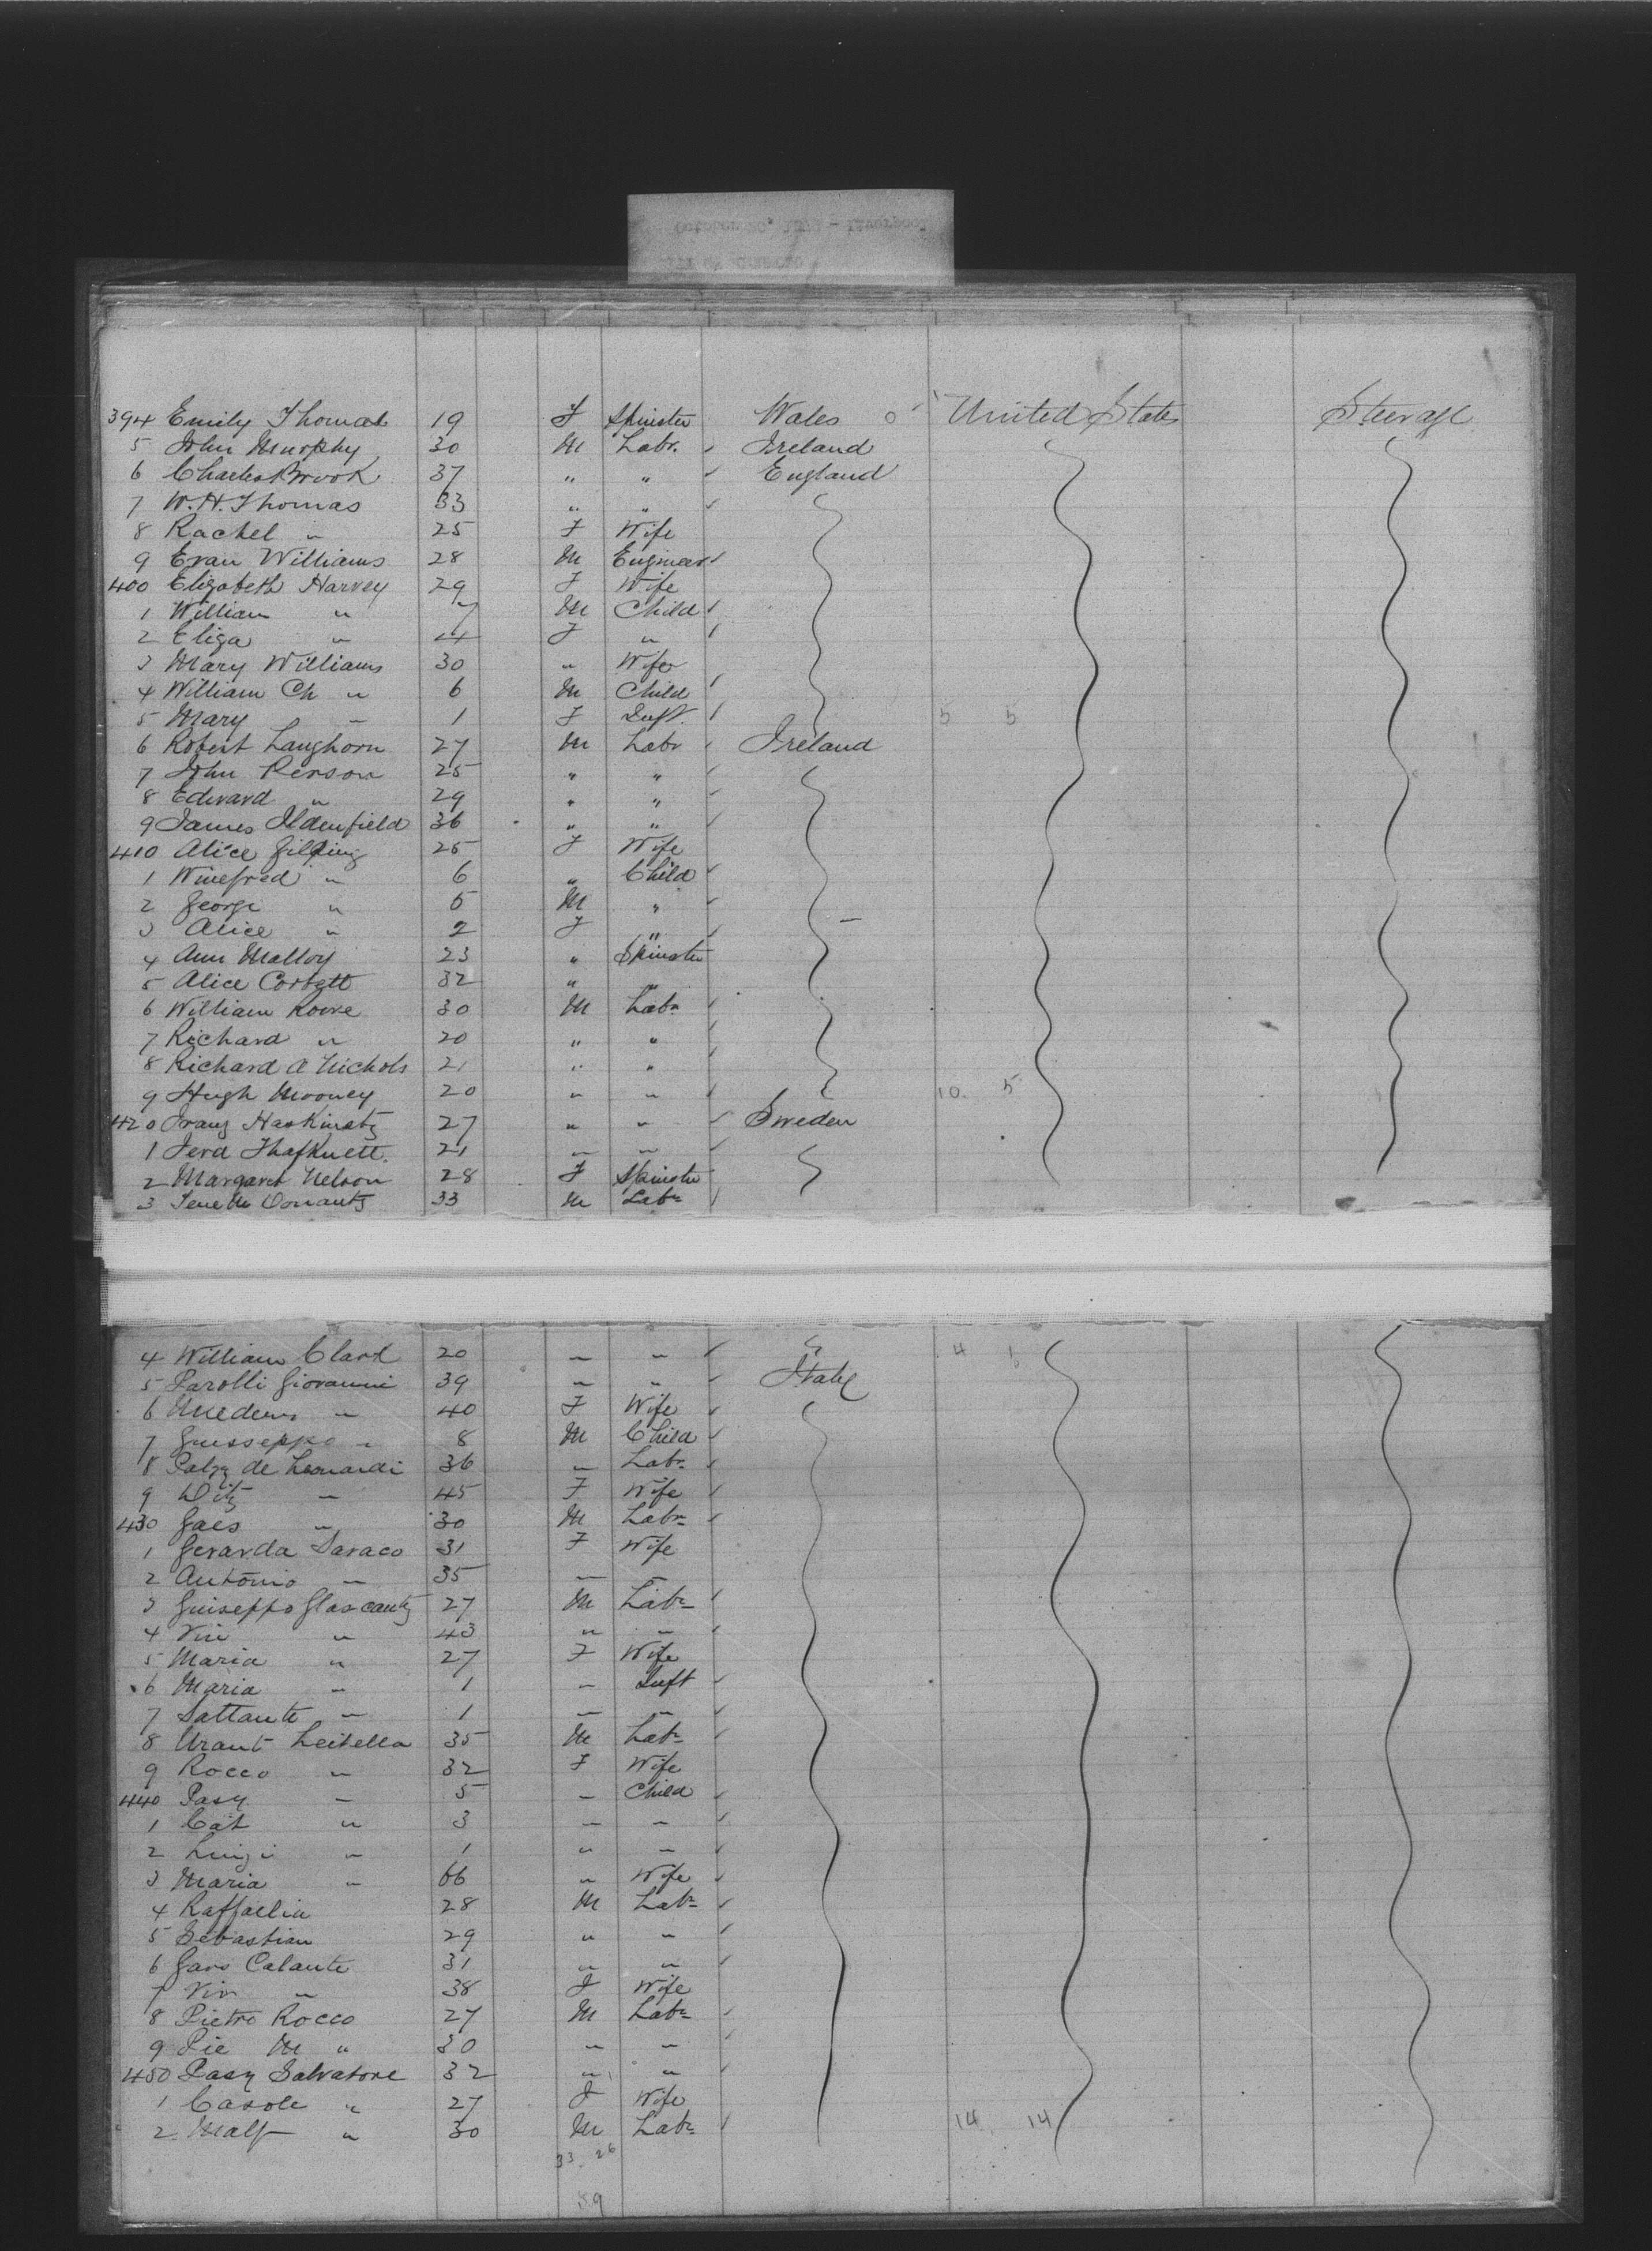 394 Emily Thomas 19 F Spinster Wales United States Steerage
5 John Murphy 30 M Labr. Ireland
6 Charles Brook 37 " " England
7 W. H. Thomas 33 " "
8 Rachel " 25 F Wife
9 Evan Williams 28 M Engineer
400 Elizabeth Harvey 29 F Wife
1 William " 7 M Child
2 Eliza " 4 F "
3 Mary Williams 30 " Wife
4 William Ch " 6 M Child
5 Mary " 1 F Inft. 5 5
6 Robert Langhorn 27 M Labr Ireland
7 John Person 25 " "
8 Edward " 29 " "
9 James Oldenfield 36 " "
410 Alice 25 F Wife
1 Winefred " 6 " Child
2 George " 5 M "
3 Alice " 2 F "
4 Ann Malloy 23 " Spinster
5 Alice Corbett 32 " "
6 William Rowe 30 M Labr
7 Richard " 20 " "
8 Richard A Nichols 21 " "
9 Hugh Mooney 20 " " 10 5
420 Franz 27 " " Sweden
1 Ferd 21 " "
2 Margaret Nelson 28 F Spinster
3 33 M Labr
4 William Clark 20 " " 4
5 Parolli Giovanni 39 " " Italy
6 " 40 F Wife
7 Guisseppe " 8 M Child
8 de Leonardi 36 " Labr
9 " 45 F Wife
430 Gaes " 30 M Labr
1 Gerarda Saraco 31 F Wife
2 Antonio " 35 " "
3 Guiseppo 27 M Labr
4 Vin " 43 " "
5 Maria " 27 F Wife
6 Maria " 1 " Inft
7 " 1 " "
8 Leibella 35 M Labr
9 Rocco " 32 F Wife
440 Pasq " 5 " Child
1 Cat " 3 " "
2 Luigi " 1 " "
3 Maria " 66 " Wife
4 Raffaelia 28 M Labr
5 Sebastian 29 " "
6 Garo Calante 31 " "
7 Vin " 38 F Wife
8 Pietro Rocco 27 M Labr
9 Pie M " 30 " "
450 Pasq Salvatore 32 " "
1 Casole " 27 F Wife
2 Malf " 30 M Labr 14 14
33 26
59